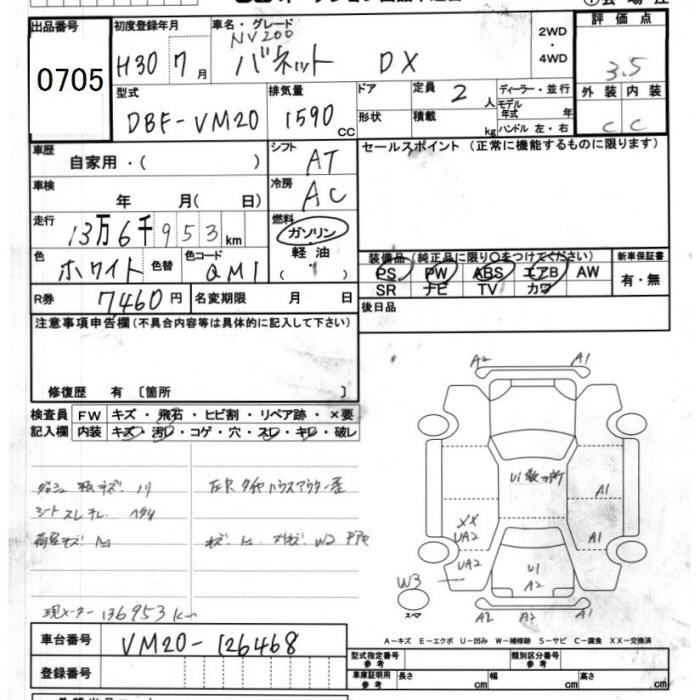 出品番号
0705
初度登録年月
H30 7月
車名・グレード
NV200
バネット DX
2WD・4WD
評価点
3.5
外装 内装
C C
型式
DBF-VM20
排気量
1590 CC
ドア
形状
定員 2 人
積載 kg
ディーラー・並行
モデル年式 年
ハンドル 左・右
車歴
自家用・( )
シフト AT
車検
年 月( 日)
冷房 AC
走行
13万6千953km
燃料
ガソリン
軽油
( )
色 ホワイト 色替
色コード QM1
R券 7460円
名変期限 月 日
セールスポイント (正常に機能するものに限ります)
装備品 (純正品に限り○をつけてください)
新車保証書
PS PW ABS エアB AW
有・無
SR ナビ TV カワ
後日品
注意事項申告欄(不具合内容等は具体的に記入して下さい)
修復歴 有 〔箇所 〕
検査員記入欄
FW キズ・飛石・ヒビ割・リペア跡・×要
内装 キズ・汚レ・コゲ・穴・スレ・キレ・破レ
シート スレ
現メーター 136953km
A2 A1
U1
A1
XX
UA2
A1
UA2
U1
A2
W3
スペア
A2 A2 A1
A−キズ E−エクボ U−凹み W−補修跡 S−サビ C−腐食 XX−交換済
車台番号 VM20-126468
登録番号
型式指定番号 参考
類別区分番号 参考
車庫証明用 参考 長さ cm 幅 cm 高さ cm